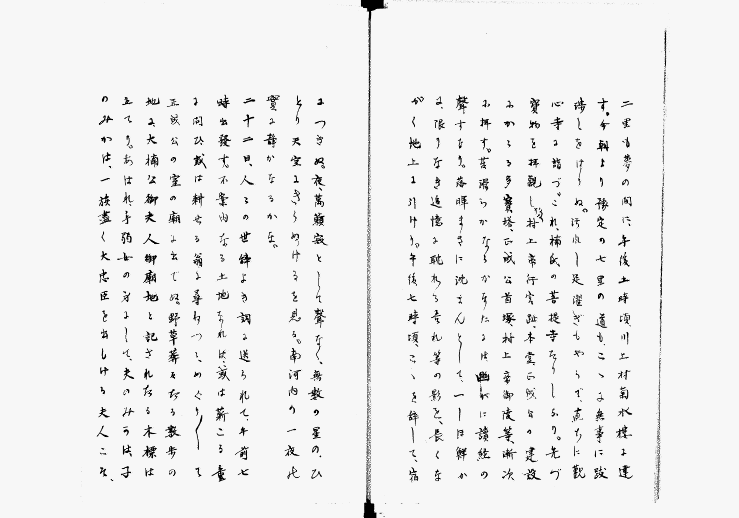 二里も夢の間に、午後七時頃川上村菊水樓に達
す。今朝より豫定の七里の道も、こゝに無事に踏
破しをはりぬ。汚れし足濯ぎもやらで、直ちに觀
心寺に詣づ。これ、楠氏の菩提寺たりしなり。先づ
寶物を拝觀し、村上帝行宮趾、本堂、正成公の建設
にかゝる多寶塔、正成公首塚、村上帝御陵等、漸次
に拝す。苔滑らかなるかなたには幽かに讀經の
聲すなり。落暉まさに沈まんとして、一しほ鮮か
に、限りなき追憶に耽れる吾れ等の影を、長くな
がく地上に引けり。午後七時頃、こゝを辞して、宿
につきぬ。夜、萬籟寂として聲なく、無數の星の、ひ
とり天空にきらめけるを見る。南河内の一夜、
實に静かなるかな。
二十二日、人々の世
時出發す。不案内なる土地なれば、或は薪こる童
に問ひ、或は耕せる翁に尋ねつゝ、めぐり〳〵て
正成公の室の廟に出でぬ。野草葬々たる數歩の
地に大楠公御夫人御廟地と記されたる木標は
立てり。あはれ手弱女の身にして、夫のみかは、子
のみかは、一族盡く大忠臣を出しける夫人こそ、